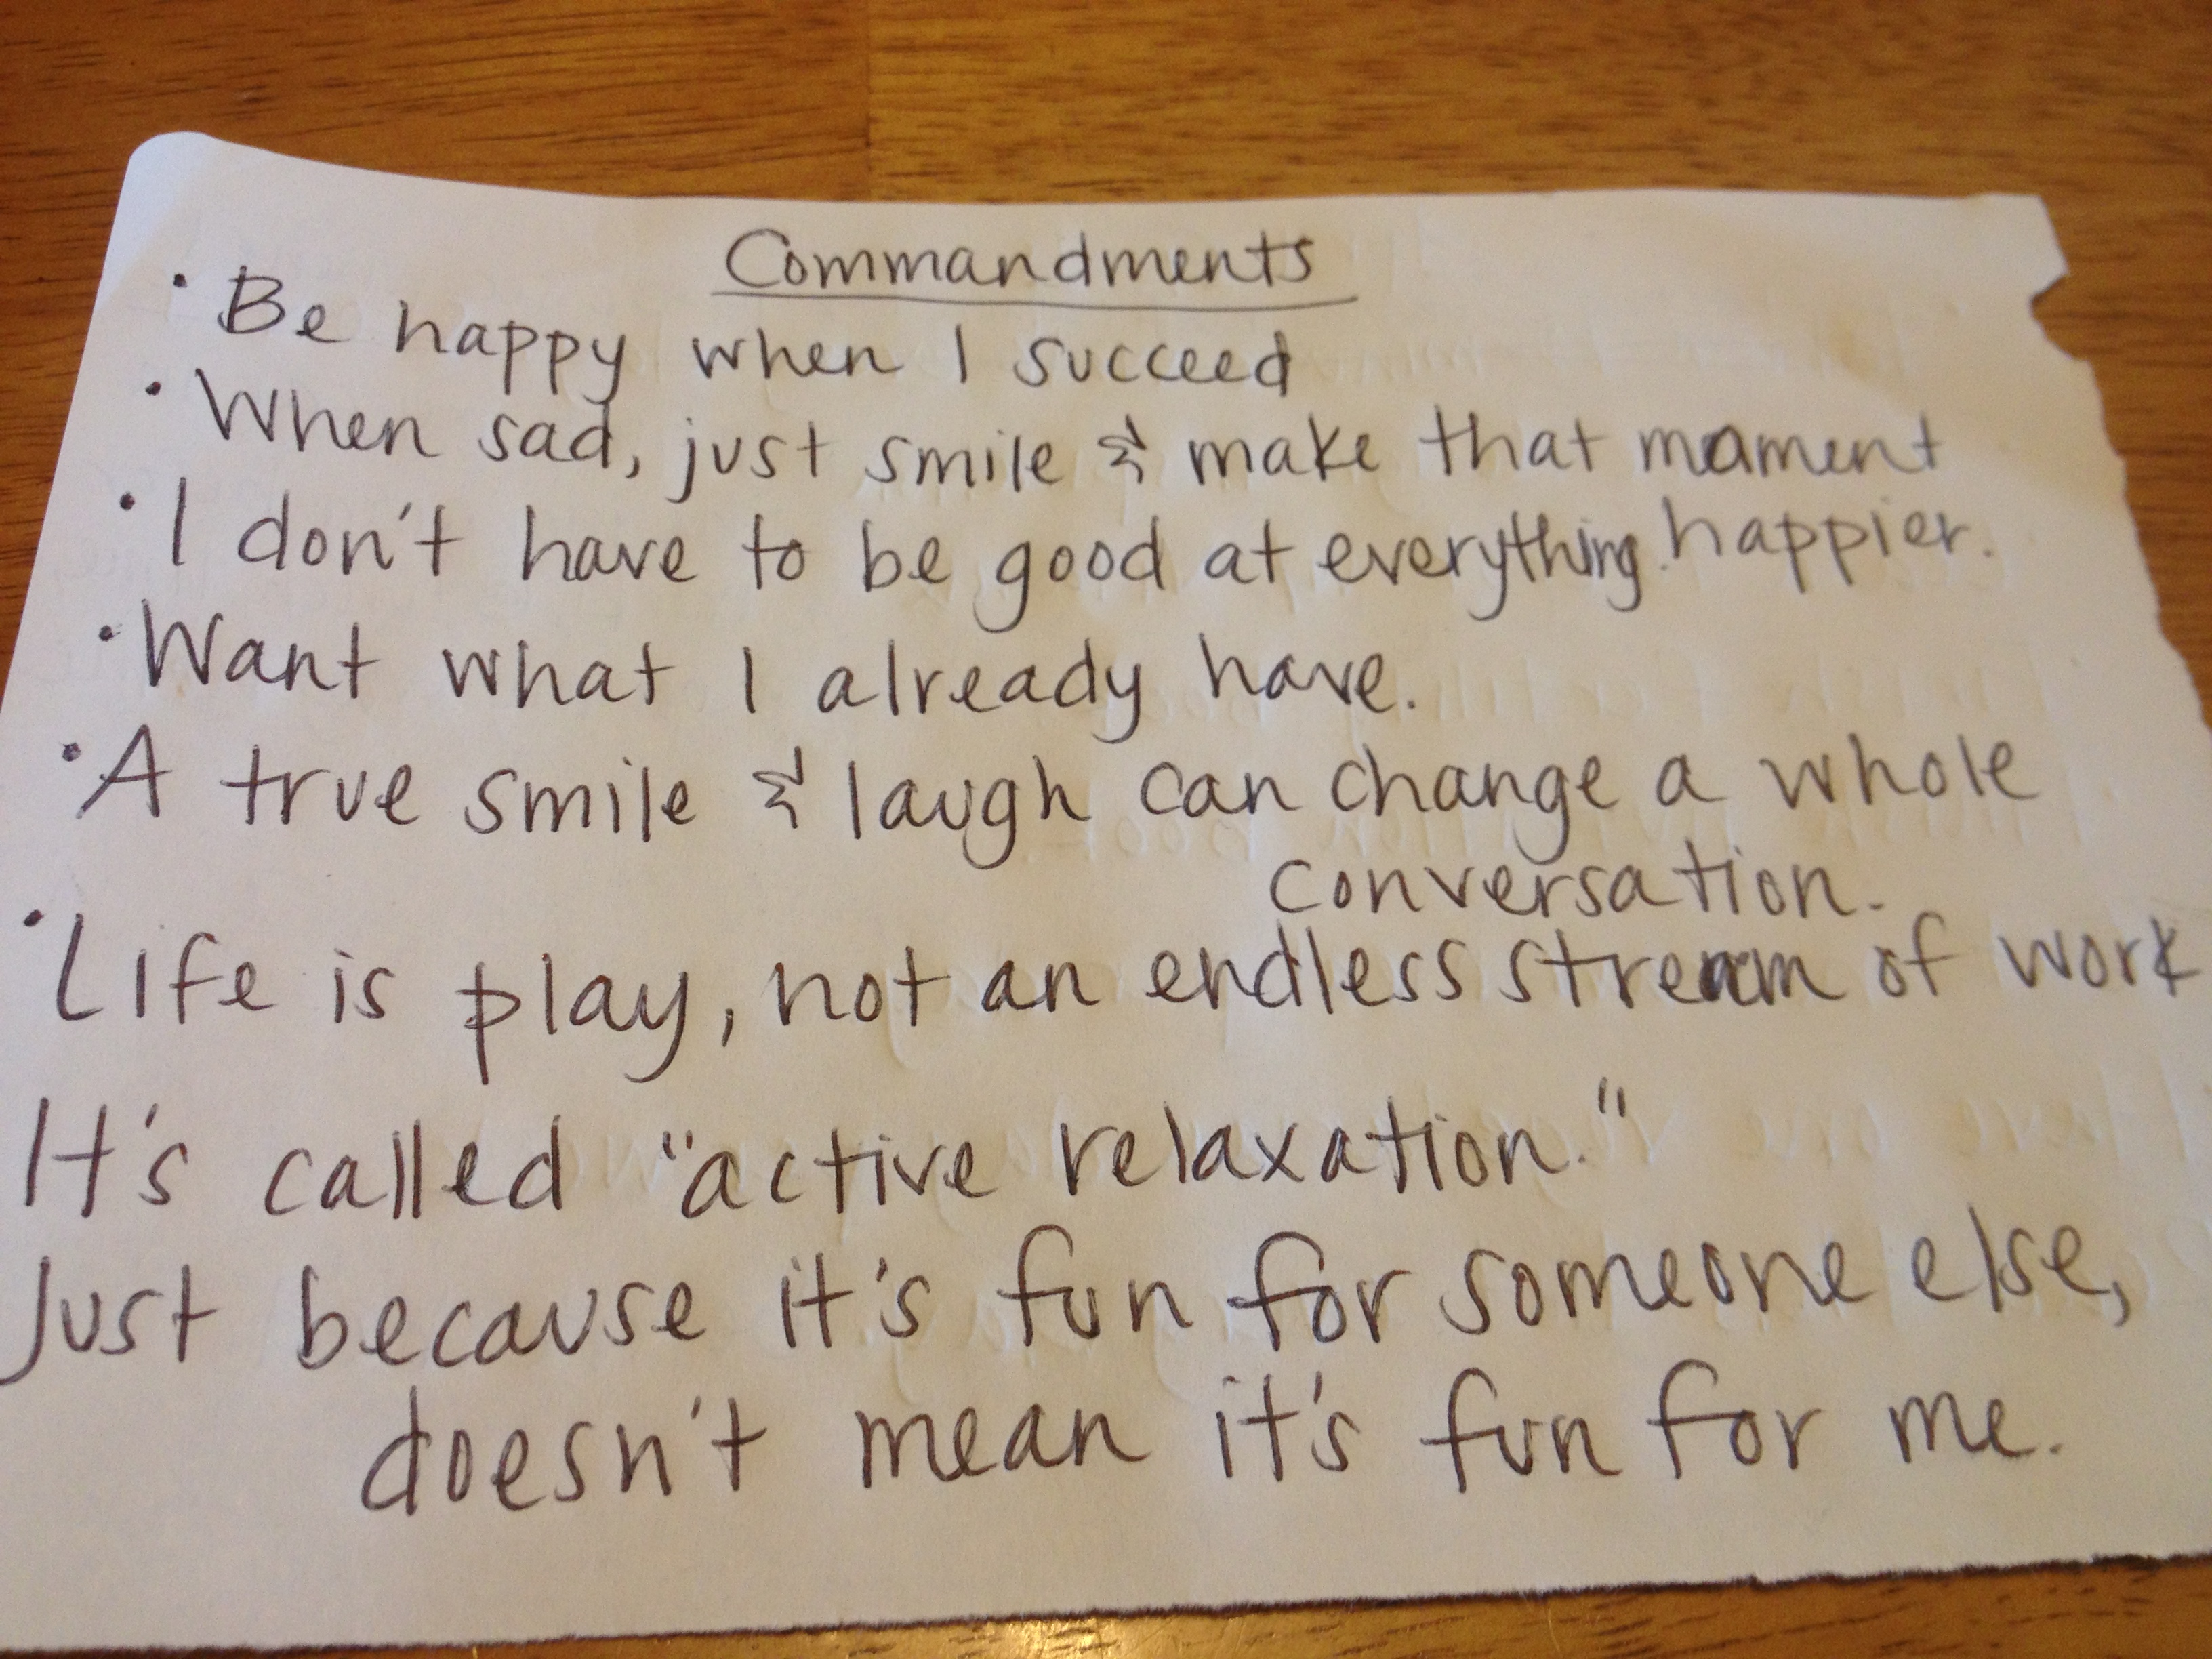 Commandments
• Be happy when I succeed
• When sad, just smile & make that moment
happier.
• I don't have to be good at everything.
• Want what I already have.
• A true smile & laugh can change a whole
conversation.
• Life is play, not an endless stream of work
It's called "active relaxation."
Just because it's fun for someone else,
doesn't mean it's fun for me.